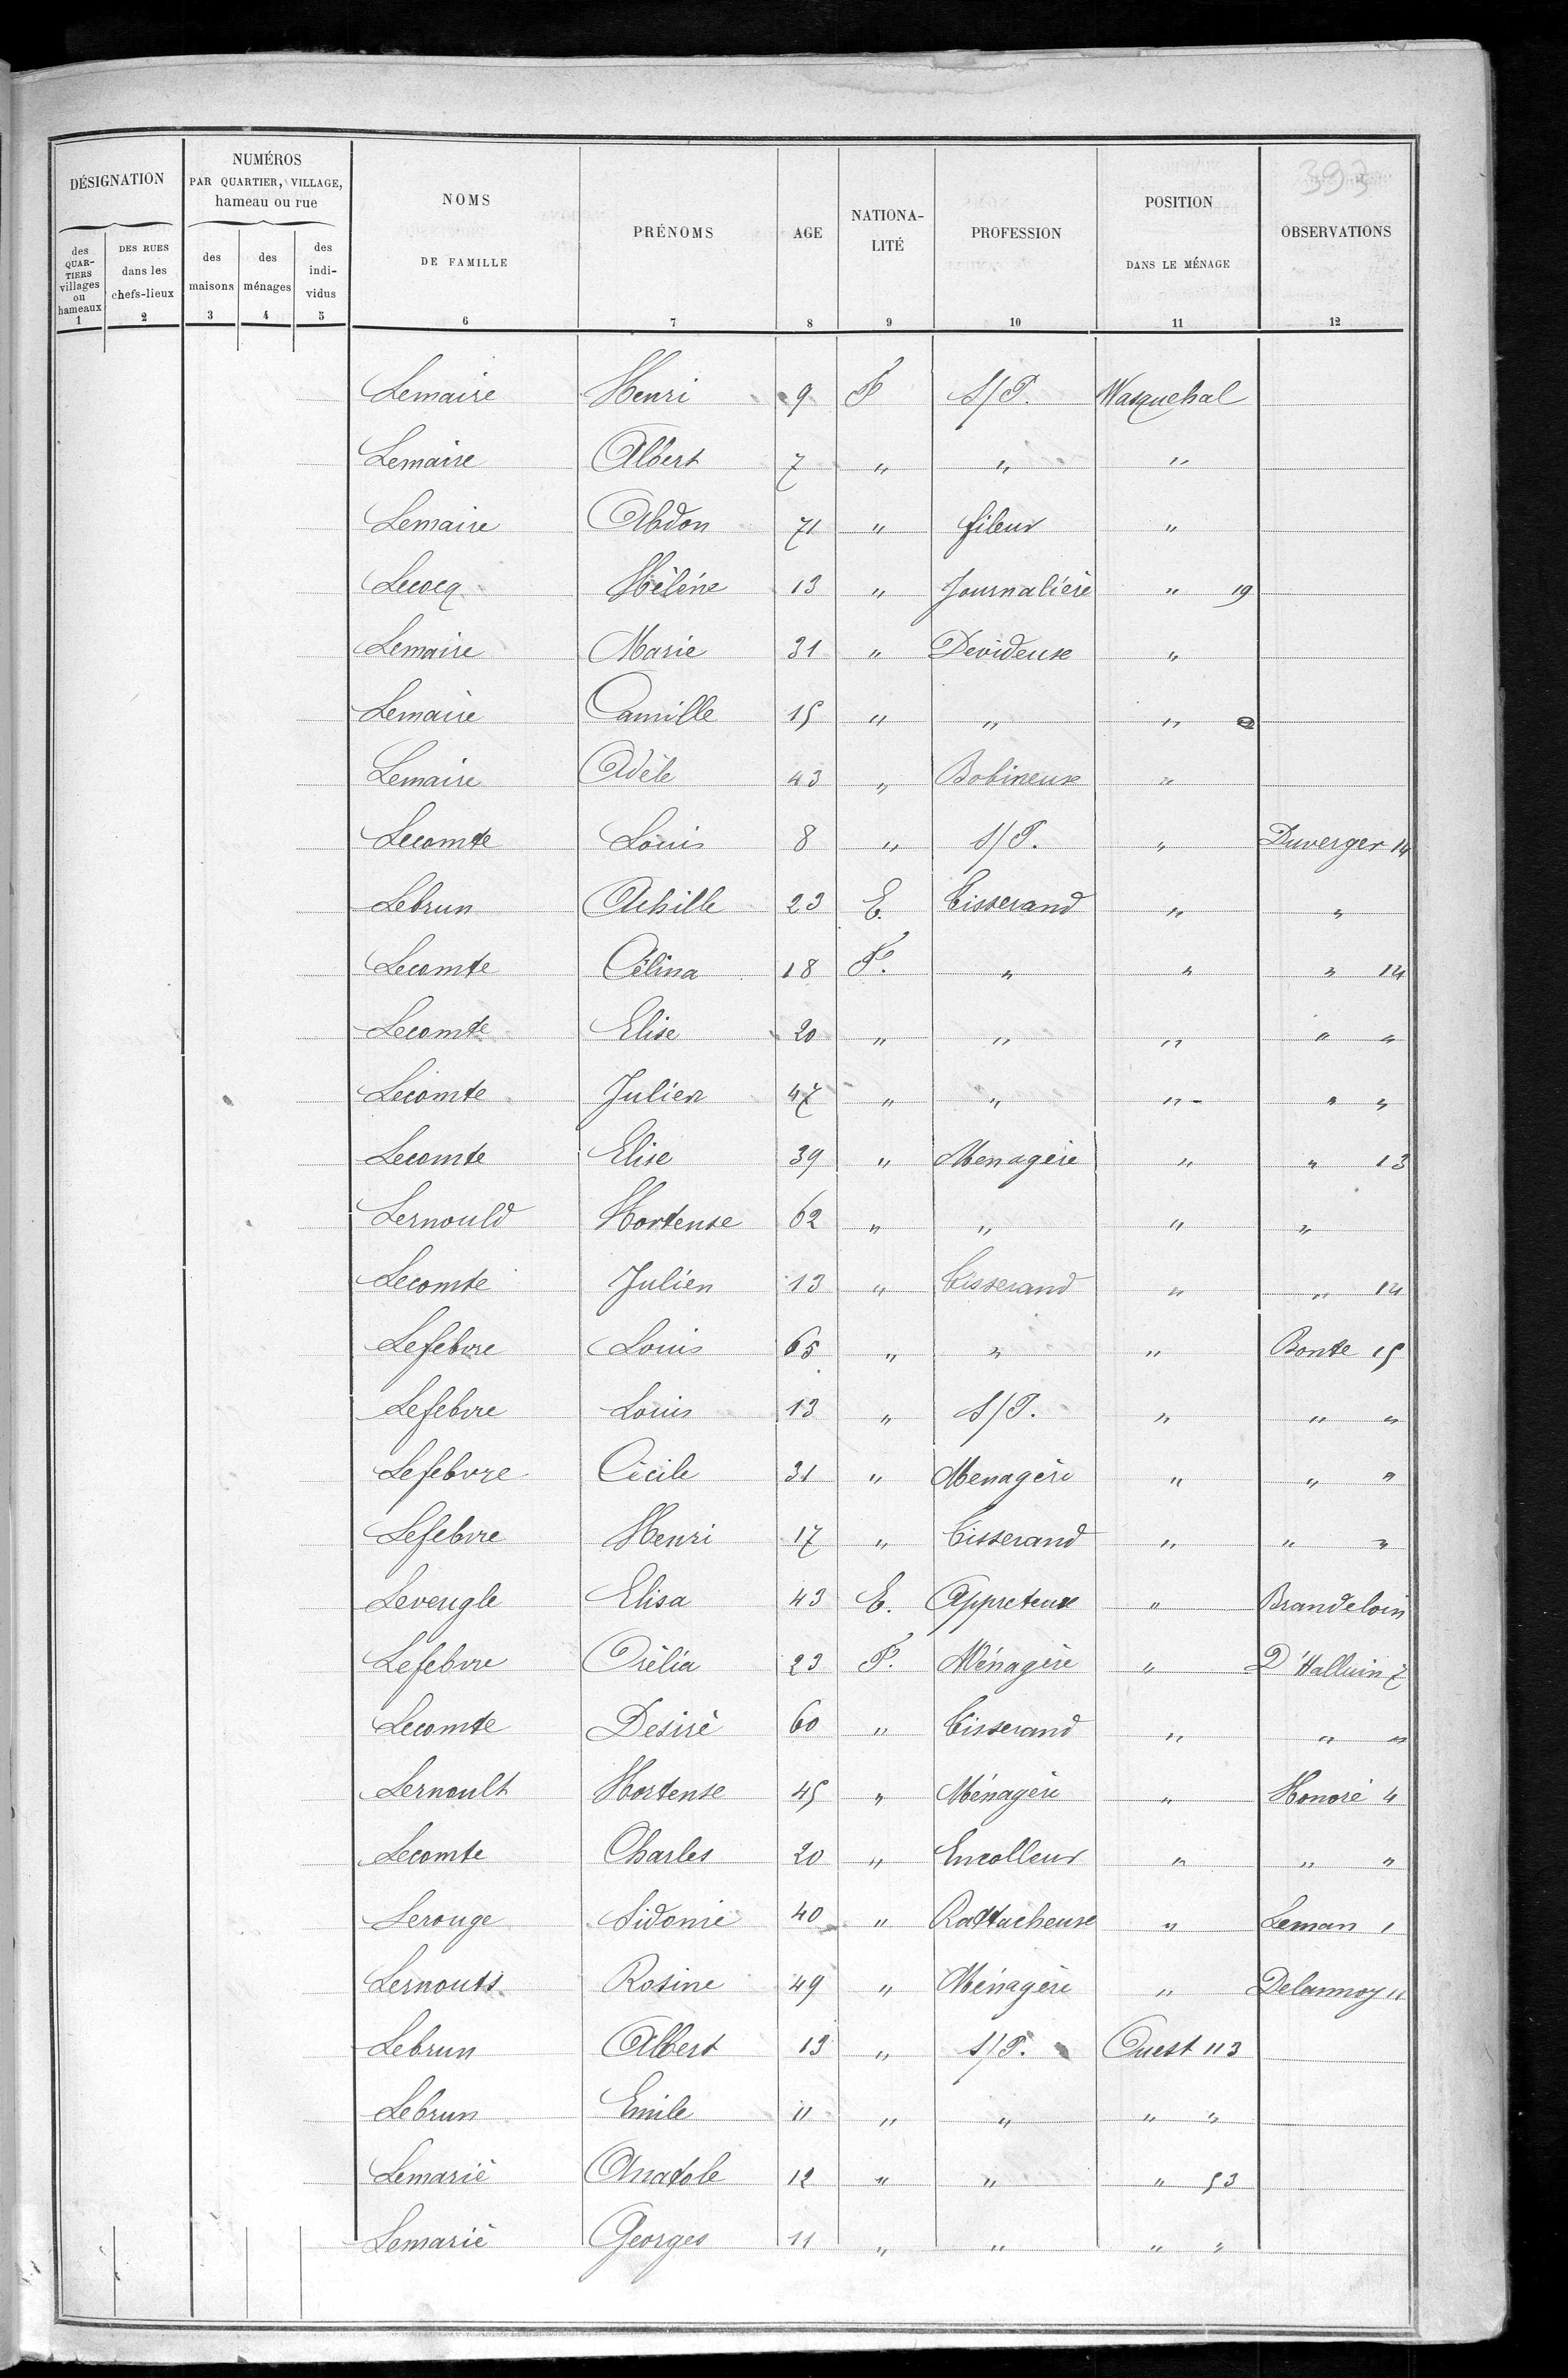 393
DÉSIGNATION | NUMÉROS PAR QUARTIER, VILLAGE, hameau ou rue | NOMS DE FAMILLE | PRÉNOMS | AGE | NATIONA-LITÉ | PROFESSION | POSITION DANS LE MÉNAGE | OBSERVATIONS
des QUAR-TIERS villages ou hameaux | DES RUES dans les chefs-lieux | des maisons | des ménages | des indi-vidus
1 | 2 | 3 | 4 | 5 | 6 | 7 | 8 | 9 | 10 | 11 | 12
Lemaire | Henri | 9 | F | S/P. | Wasquehal
Lemaire | Albert | 7 | " | " | "
Lemaire | Abdon | 71 | " | fileur | "
Lecocq | Hélène | 13 | " | Journalière | " 19
Lemaire | Marie | 31 | " | Devideuse | "
Lemaire | Camille | 15 | " | " | "
Lemaire | Adèle | 43 | " | Bobineuse | "
Lecomte | Louis | 8 | " | S/P. | " | Duverger 14
Lebrun | Achille | 23 | E. | Tisserand | " | "
Lecomte | Célina | 18 | F. | " | " | " 14
Lecomte | Elise | 20 | " | " | " | " "
Lecomte | Julien | 47 | " | " | " | " "
Lecomte | Elise | 39 | " | Menagère | " | " 13
Lernould | Hortense | 62 | " | " | " | "
Lecomte | Julien | 13 | " | Tisserand | " | " 14
Lefebvre | Louis | 65 | " | " | " | Bonte 15
Lefebvre | Louis | 13 | " | S/P. | " | " "
Lefebvre | Cécile | 31 | " | Menagère | " | " "
Lefebvre | Henri | 17 | " | Tisserand | " | " "
Leveugle | Elisa | 43 | E. | Appreteuse | " | Brandeloin
Lefebvre | Orélia | 23 | F. | Ménagère | " | D'Halluin 7
Lecomte | Desiré | 60 | " | Tisserand | " | " "
Lernoult | Hortense | 45 | " | Ménagère | " | Honoré 4
Lecomte | Charles | 20 | " | Encolleur | " | " "
Lerouge | Sidonie | 40 | " | Rattacheuse | " | Leman 1
Lernouts | Rosine | 49 | " | Ménagère | " | Delannoy 11
Lebrun | Albert | 13 | " | S/P. | Ouest 113
Lebrun | Emile | 11 | " | " | " "
Lemarié | Anatole | 12 | " | " | " 53
Lemarié | Georges | 11 | " | " | " "